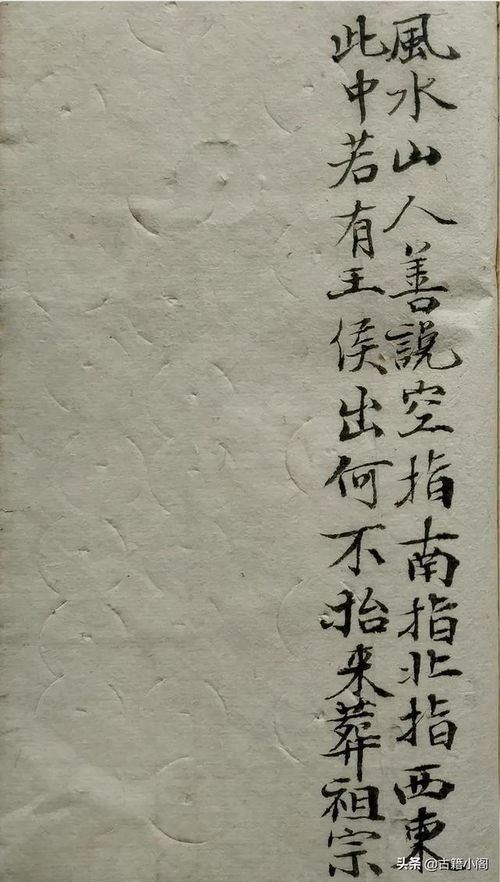 風水山人善說空指南指北指西東
此中若有王侯出何不抬来葬祖宗
头条 @古籍小阁